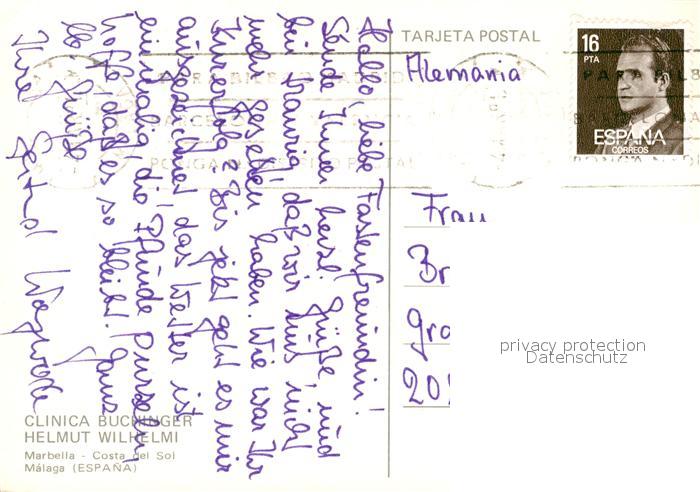 Hallo, liebe Fastenfreundin!
Sende Ihnen herzl. Grüße, und
bin traurig, daß wir uns nicht
mehr gesehen haben. Wie war Ihr
Kurerfolg? Bis jetzt geht es mir
ausgezeichnet, das Wetter ist
einmalig, die Pfunde purzeln,
hoffe, daß es so bleibt. Ganz
lb. Grüße
Ihre
TARJETA POSTAL
Alemania
16
PTA
ESPAÑA
CORREOS
Frau
Br
gro
20
privacy protection
Datenschutz
CLINICA BUCHINGER
HELMUT WILHELMI
Marbella - Costa del Sol
Málaga (ESPAÑA)